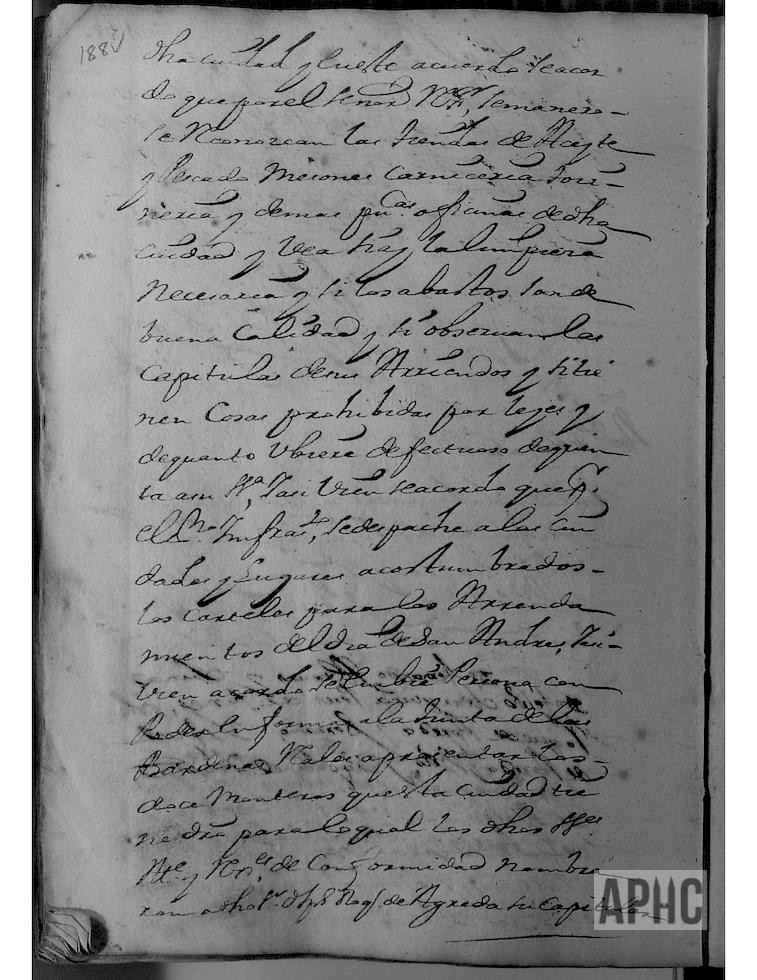 188V
dha ciudad y en este acuerdo se acor
do que por el senor Rexr semanero
se Reconozcan las tiendas de Aceyte
y Pescado Mesones Carniceria toci
neria y demas pucas oficinas de dha
ciudad y vea si hay la limpieza
Necesaria y si los abastos son de
buena Calidad y si observan las
Capitulas de sus Arriendos y si tie
nen Cosas prohibidas por leyes y
de quanto Ubiere defectuoso de quen
ta a su Sa Tasi Vien se acordo que Pr
el Prete Infrato se despache a las Ciu
dades y Lugares acostumbrados
los carteles para los Arrenda
mientos del dia de San Andres, Tasi
Vien acordo se embie Persona con
Poder en forma a la Junta de las
Bardenas Rales a presentar los
doce Monteros que esta Ciudad tie
ne dro para lo qual los dhos SSes
Alce y Rexes de Conformidad Nombra
ron a dho Sr Dn Ph Roql de Agreda su Capitular
APHC